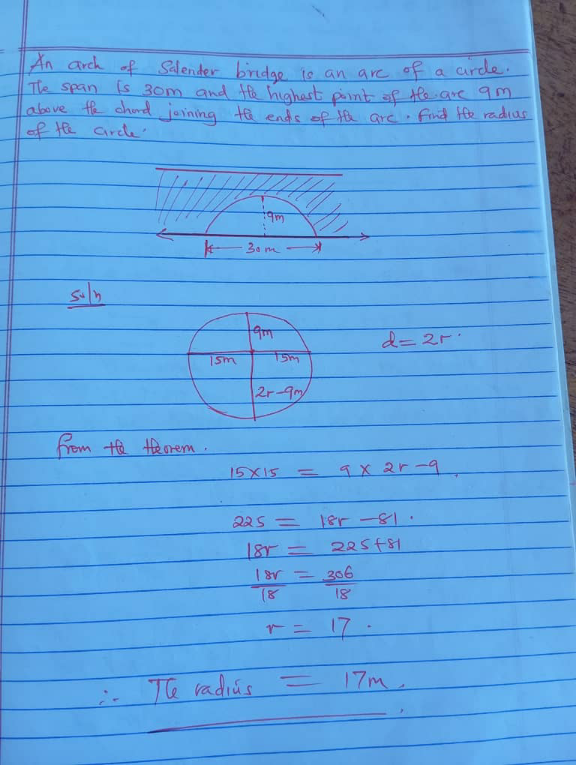 An arch of Salender bridge is an arc of a circle.
The span is 30m and the highest point of the arc 9m
above the chord joining the ends of the arc. Find the radius
of the circle.
9m
30m
soln
9m
d = 2r.
15m 15m
2r-9m
from the theorem.
15×15 = 9 × 2r-9.
225 = 18r - 81.
18r = 225+81
18r = 306
18 18
r = 17.
∴ The radius = 17m.